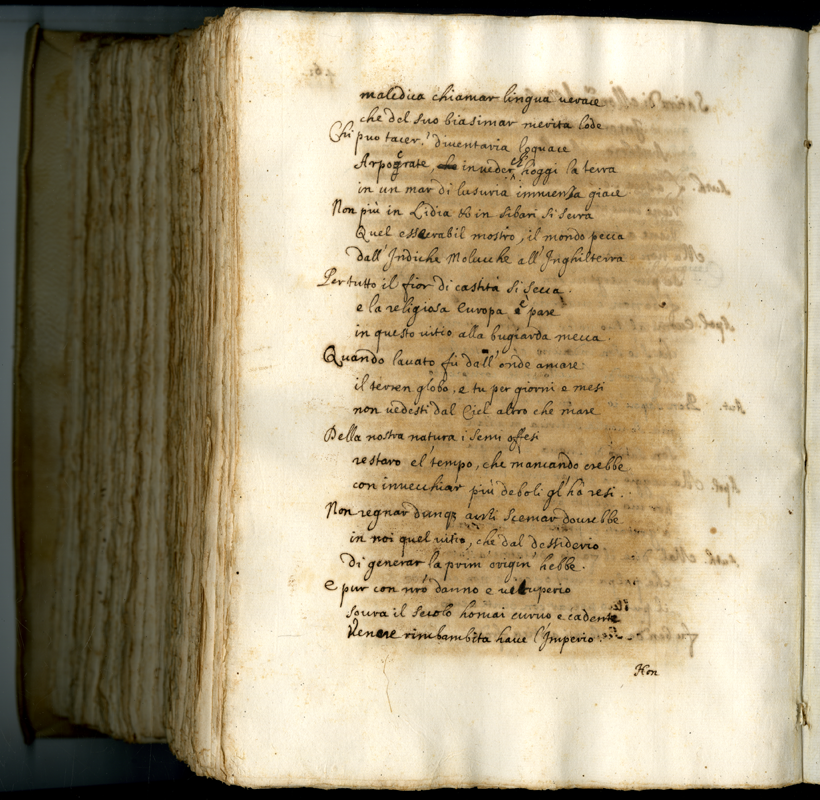 maledica chiamar lingua verace
che del suo biasimar merita lode
Chi puo tacer? diventaria loquace
Arpocrate, in veder ch'hoggi la terra
in un mar di lusuria immensa giace
Non più in Lidia in Sibari si serra
Quel essecrabil mostro, il mondo pecca
dall'Indiche Molucche all'Inghilterra
Per tutto il fior di castità si secca
e la religiosa Europa è pare
in questo vitio alla bugiarda mecca
Quando lavato fù dall'onde amare
il terren globo, e tu per giorni e mesi
non vedesti dal Ciel altro che mare
Della nostra natura i semi offesi
restaro e'l tempo, che mancando crebbe
con invecchiar più deboli gl'hà resi.
Non regnar dunq; anzi scemar dovrebbe
in noi quel vitio, che dal dessiderio
di generar la prim' origin' hebbe.
E pur con nro danno e vituperio
sovra il secolo homai curvo e cadente
Venere rimbambita have l'Imperio.
Hon